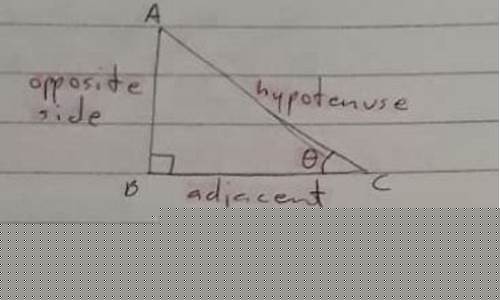 A
opposite
side
hypotenuse
θ
B
adjacent
C